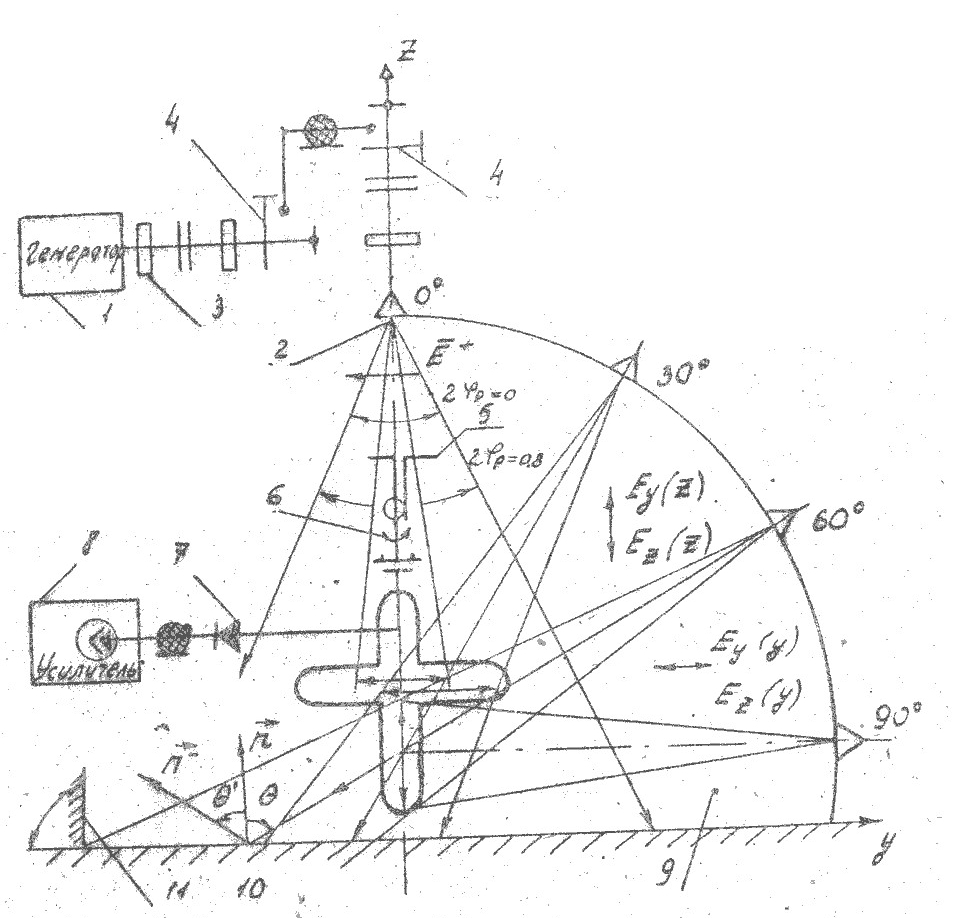 Z
4
4
Генератор
1
3
0°
2
Ē⁺
30°
2φₚ=0
5
2φₚ=0,8
6
E_y(z)
E_z(z)
60°
8
7
Усилитель
E_y(y)
E_z(y)
90°
n⃗
n⃗
θ'
θ
y
11
10
9